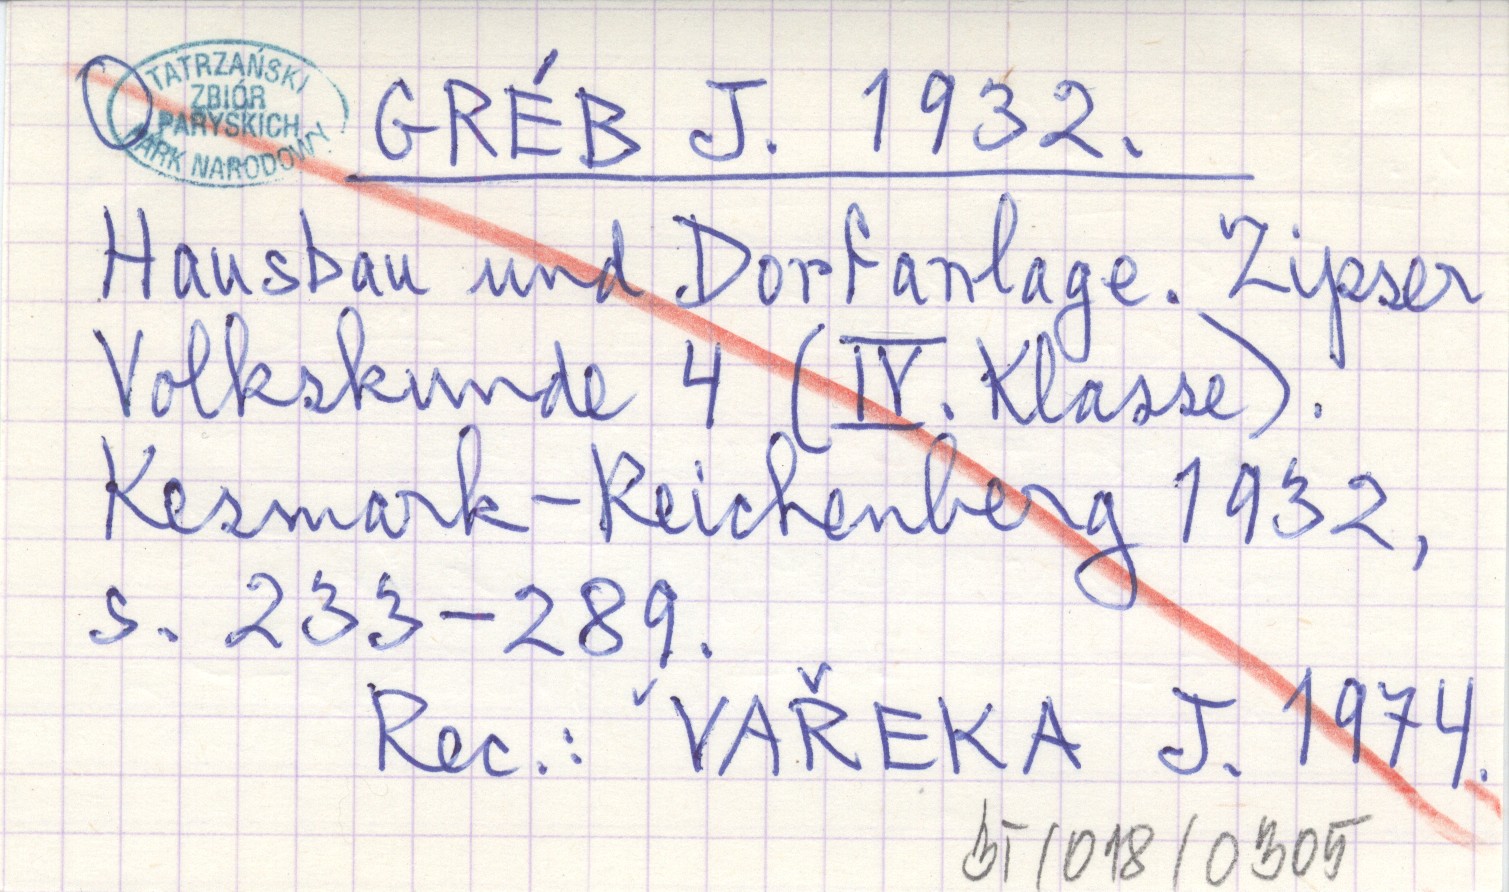 TATRZAŃSKI
ZBIÓR
PARYSKICH
PARK NARODOWY
GRÉB J. 1932.
Hausbau und Dorfanlage. Zipser
Volkskunde 4 (IV. Klasse).
Kesmark-Reichenberg 1932,
s. 233-289.
Rec.: VAŘEKA J. 1974.
BT/018/0305